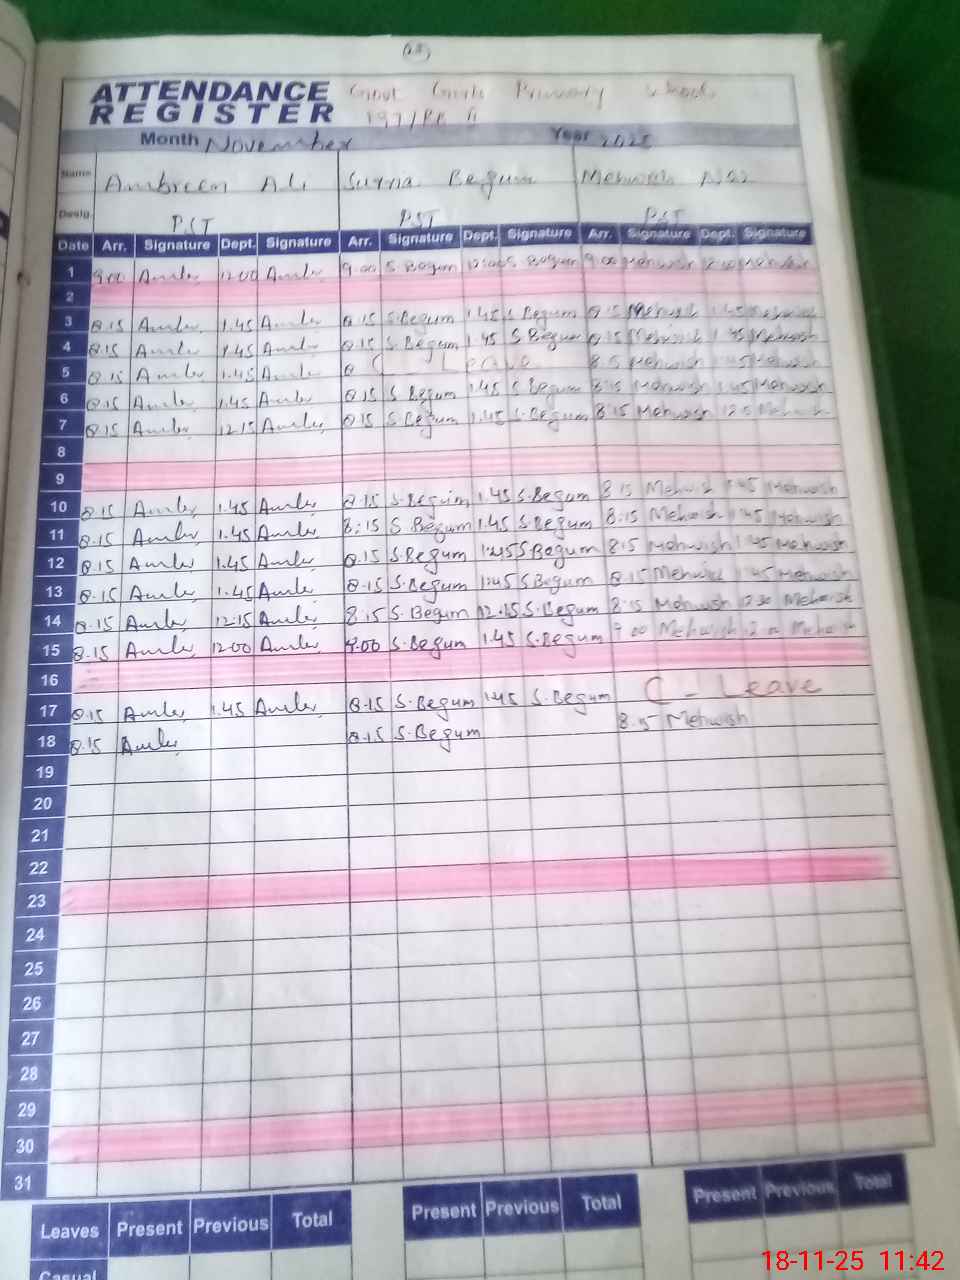 ATTENDANCE REGISTER
Govt Girls Primary School
197/RB
Month November Year 2025
Name Ambreen Ali Surria Begum Mehwish
Desig. PST PST PST
Date Arr. Signature Dept. Signature Arr. Signature Dept. Signature Arr. Signature Dept. Signature
1 9.00 1200 9.00 S. Begum 12:00 S. Begum 9.00 Mehwish 12.00 Mehwish
2
3 8.15 1.45 8.15 S.Begum 1.45 S.Begum 8.15 Mehwish 1.45 Mehwish
4 8.15 1.45 8.15 S.Begum 1.45 S Begum 8.15 Mehwish 1.45 Mehwish
5 8.15 1.45 C Leave 8.5 Mehwish 1.45 Mehwish
6 8.15 1.45 8.15 S Begum 1.45 S Begum 8.15 Mehwish 1.45 Mehwish
7 8.15 12.15 8.15 S Begum 1.45 S.Begum 8.15 Mehwish Mehwish
8
9
10 8.15 1.45 8.15 S.Begum 1.45 S.Begum 8.15 Mehwish 1.45 Mehwish
11 8.15 1.45 8:15 S.Begum 1.45 S.Begum 8:15 Mehwish 1.45 Mehwish
12 8.15 1.45 8.15 S.Begum S.Begum 8.5 Mehwish 1.45 Mehwish
13 8.15 1.45 8.15 S.Begum 1.45 S Begum 8.15 Mehwish 1.45 Mehwish
14 8.15 12.15 8.15 S.Begum 12.15 S.Begum 8.15 Mehwish 12.30 Mehwish
15 8.15 1200 9.00 S.Begum 1.45 S.Begum 9.00 Mehwish Mehwish
16
17 8.15 1.45 8.15 S.Begum 1.45 S.Begum C - Leave
18 8.15 8.15 S.Begum 8.15 Mehwish
19
20
21
22
23
24
25
26
27
28
29
30
31
Leaves Present Previous Total Present Previous Total Present Previous Total
Casual
18-11-25 11:42